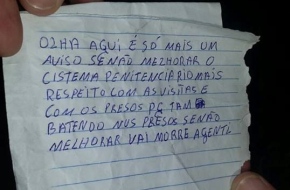 OLHA AQUI É SÓ MAIS UM
AVISO SENÃO MELHORAR O
CISTEMA PENITENCIARIO MAIS
RESPEITO COM AS VISITAS E
COM OS PRESOS PG TAM
BATENDO NUS PRESOS SENÃO
MELHORAR VAI MORRE AGENTE